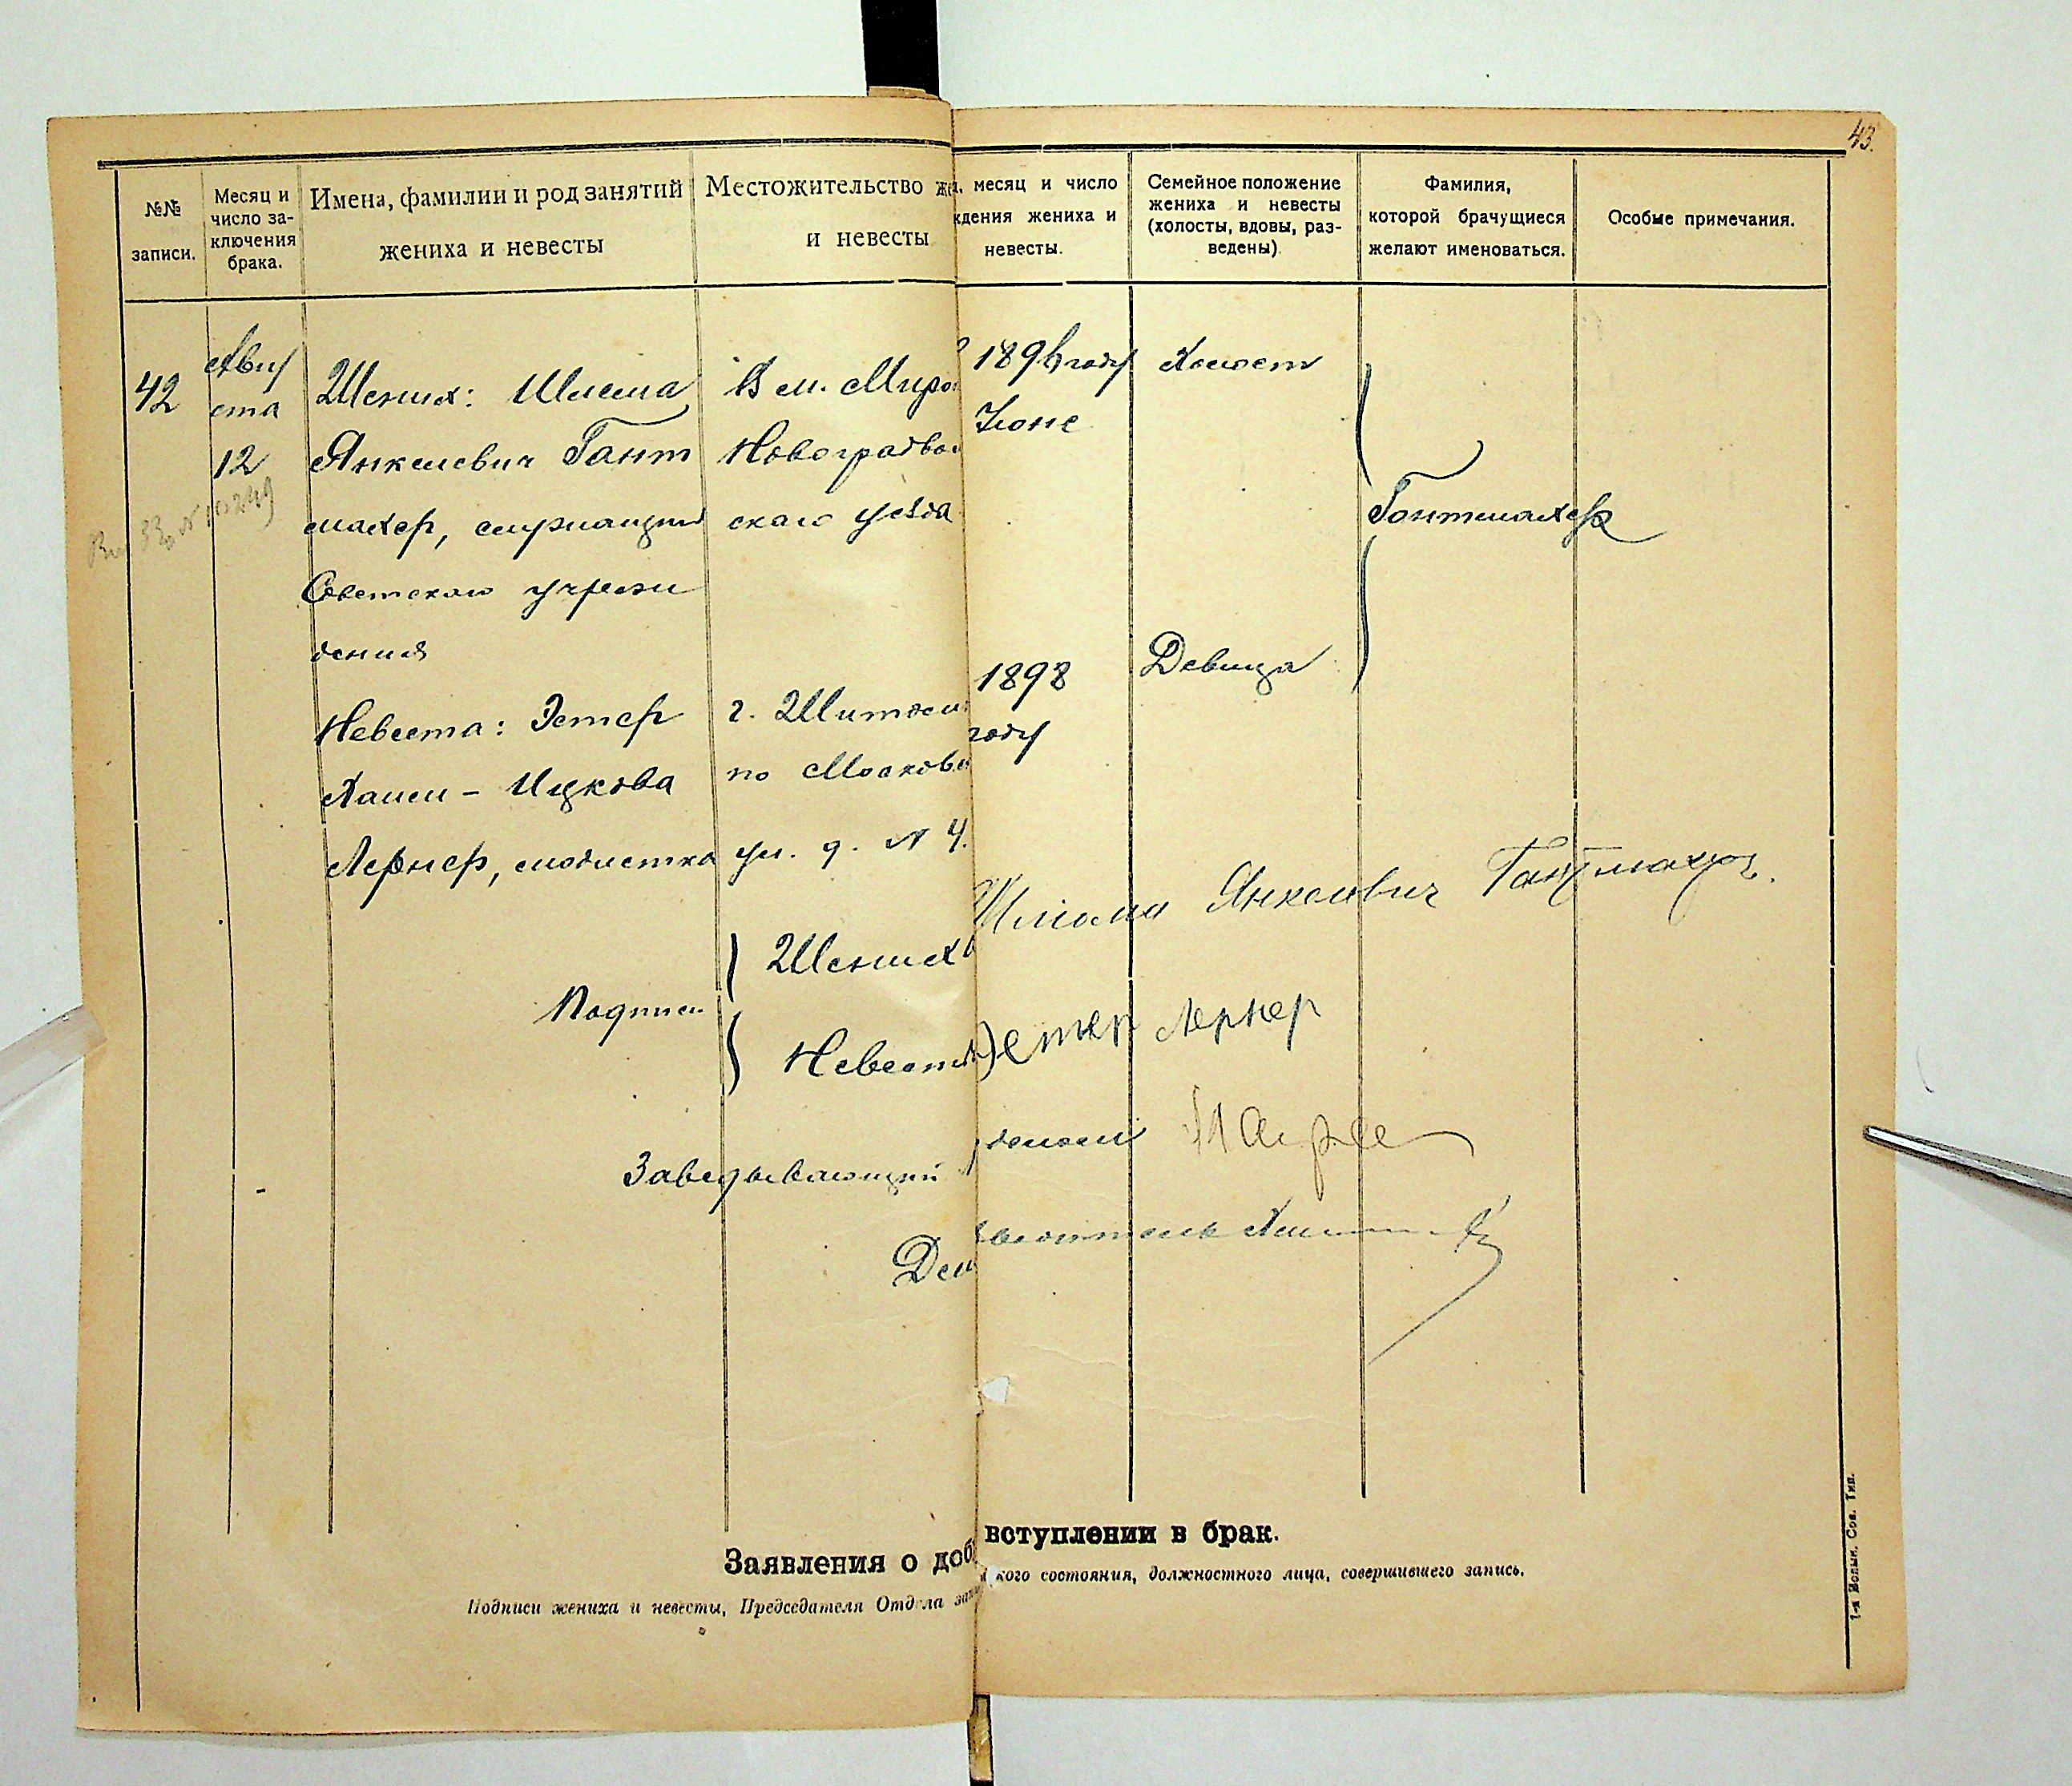 43.
№№ записи.
Месяц и число заключения брака.
Имена, фамилии и род занятий жениха и невесты
Местожительство же
и невесты
месяц и число
ждения жениха и
невесты.
Семейное положение
жениха и невесты
(холосты, вдовы, раз-
ведены).
Фамилия,
которой брачущиеся
желают именоваться.
Особые примечания.
42
Авгу
ста
12
Жених: Шлема
Янкелевич Гант
махер, служащий
Советского учреж
дения
В м. Миро
Новоградво
скаго уезда
1896 году
Июне
Холост
Гантмахер
Невеста: Эстер
Хаим-Ицкова
Лернер, модистка
г. Житом
по Московс
ул. д. № 4.
1898
году
Девица
Подписи
Жених
Шлема Янкелевич Гантмахер.
Невеста
Эстер Лернер
Заведывающий
Дел
Заявления о доб вступлении в брак.
Подписи жениха и невесты, Председателя Отдела за кого состояния, должностного лица, совершившего запись.
1-я Испык. Сов. Тип.